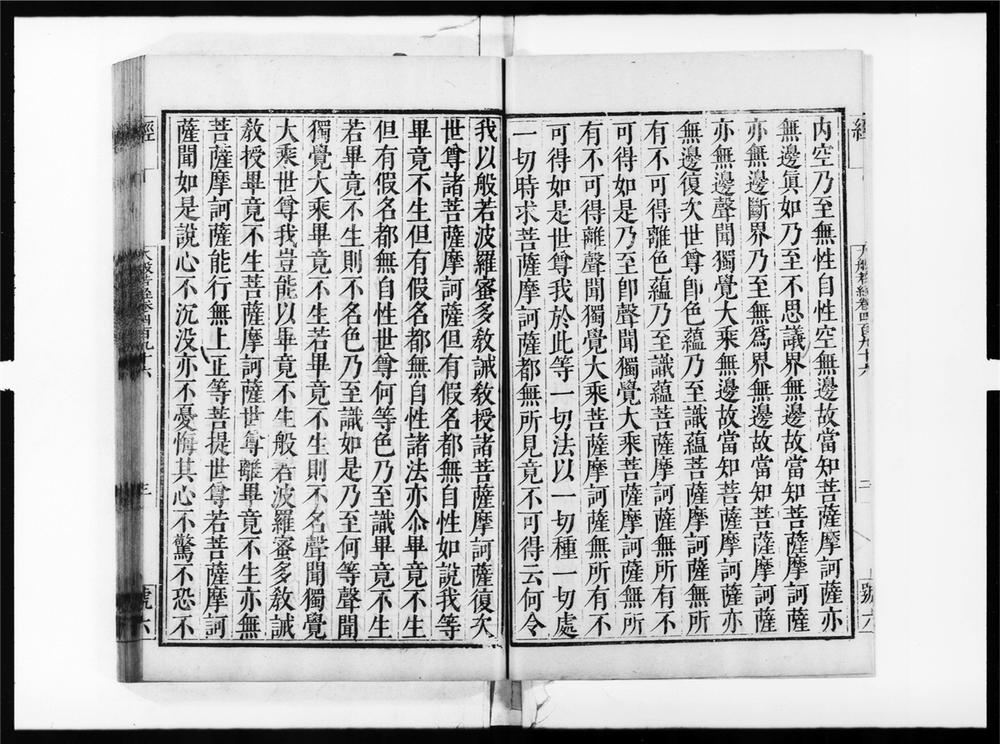 經
大般若經卷四百九十六
二
號六
内空乃至無性自性空無邊故當知菩薩摩訶薩亦
無邊眞如乃至不思議界無邊故當知菩薩摩訶薩
亦無邊斷界乃至無爲界無邊故當知菩薩摩訶薩
亦無邊聲聞獨覺大乘無邊故當知菩薩摩訶薩亦
無邊復次世尊卽色蘊乃至識蘊菩薩摩訶薩無所
有不可得離色蘊乃至識蘊菩薩摩訶薩無所有不
可得如是乃至卽聲聞獨覺大乘菩薩摩訶薩無所
有不可得離聲聞獨覺大乘菩薩摩訶薩無所有不
可得如是世尊我於此等一切法以一切種一切處
一切時求菩薩摩訶薩都無所見竟不可得云何令
我以般若波羅蜜多教誡教授諸菩薩摩訶薩復次
世尊諸菩薩摩訶薩但有假名都無自性如說我等
畢竟不生但有假名都無自性諸法亦尒畢竟不生
但有假名都無自性世尊何等色乃至識畢竟不生
若畢竟不生則不名色乃至識如是乃至何等聲聞
獨覺大乘畢竟不生若畢竟不生則不名聲聞獨覺
大乘世尊我豈能以畢竟不生般若波羅蜜多教誡
教授畢竟不生菩薩摩訶薩世尊離畢竟不生亦無
菩薩摩訶薩能行無上正等菩提世尊若菩薩摩訶
薩聞如是說心不沉没亦不憂悔其心不驚不恐不
經
大般若經卷四百九十六
三
號六